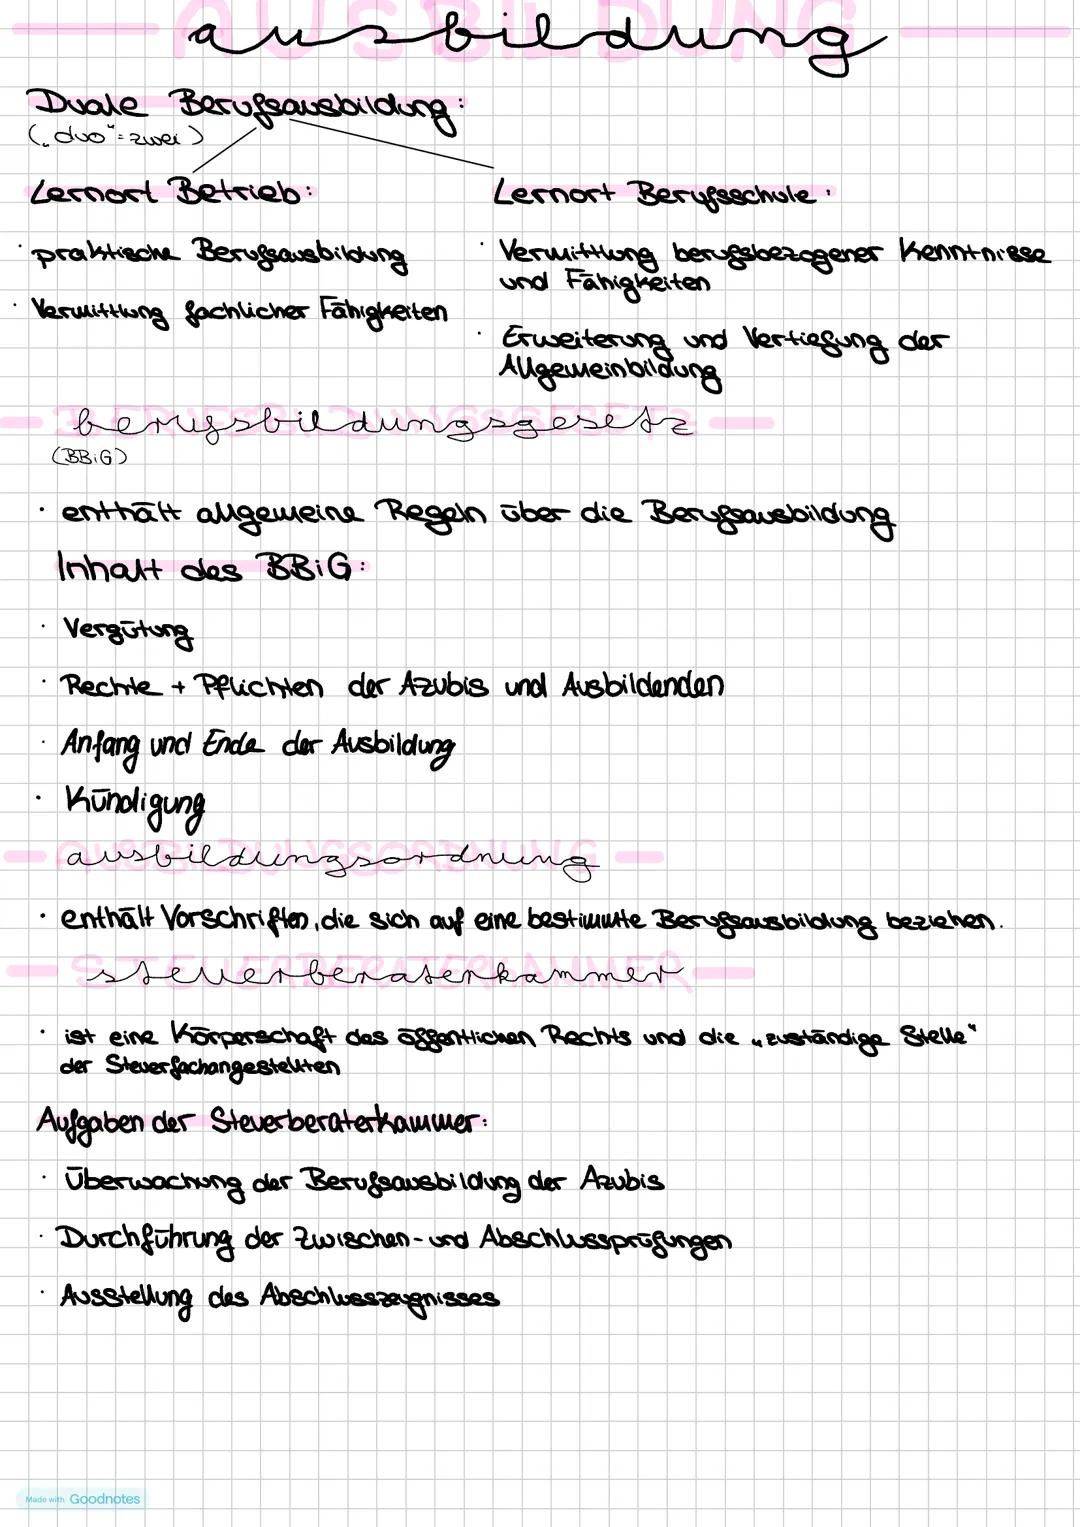 ausbildung
Duale Berufsausbildung:
(„duo"=zwei)
Lernort Betrieb:
· praktische Berufsausbildung
· Vermittlung fachlicher Fähigkeiten
Lernort Berufsschule:
· Vermittlung berufsbezogener Kenntnisse
und Fähigkeiten
· Erweiterung und Vertiefung der
Allgemeinbildung
berufsbildungsgesetz
(BBiG)
· enthält allgemeine Regeln über die Berufsausbildung
Inhalt des BBiG:
· Vergütung
· Rechte + Pflichten der Azubis und Ausbildenden
· Anfang und Ende der Ausbildung
· Kündigung
ausbildungsordnung
· enthält Vorschriften, die sich auf eine bestimmte Berufsausbildung beziehen.
steuerberaterkammer
· ist eine Körperschaft des öffentlichen Rechts und die „zuständige Stelle"
der Steuerfachangestellten
Aufgaben der Steuerberaterkammer:
· Überwachung der Berufsausbildung der Azubis
· Durchführung der Zwischen- und Abschlussprüfungen
· Ausstellung des Abschlusszeugnisses
Made with Goodnotes